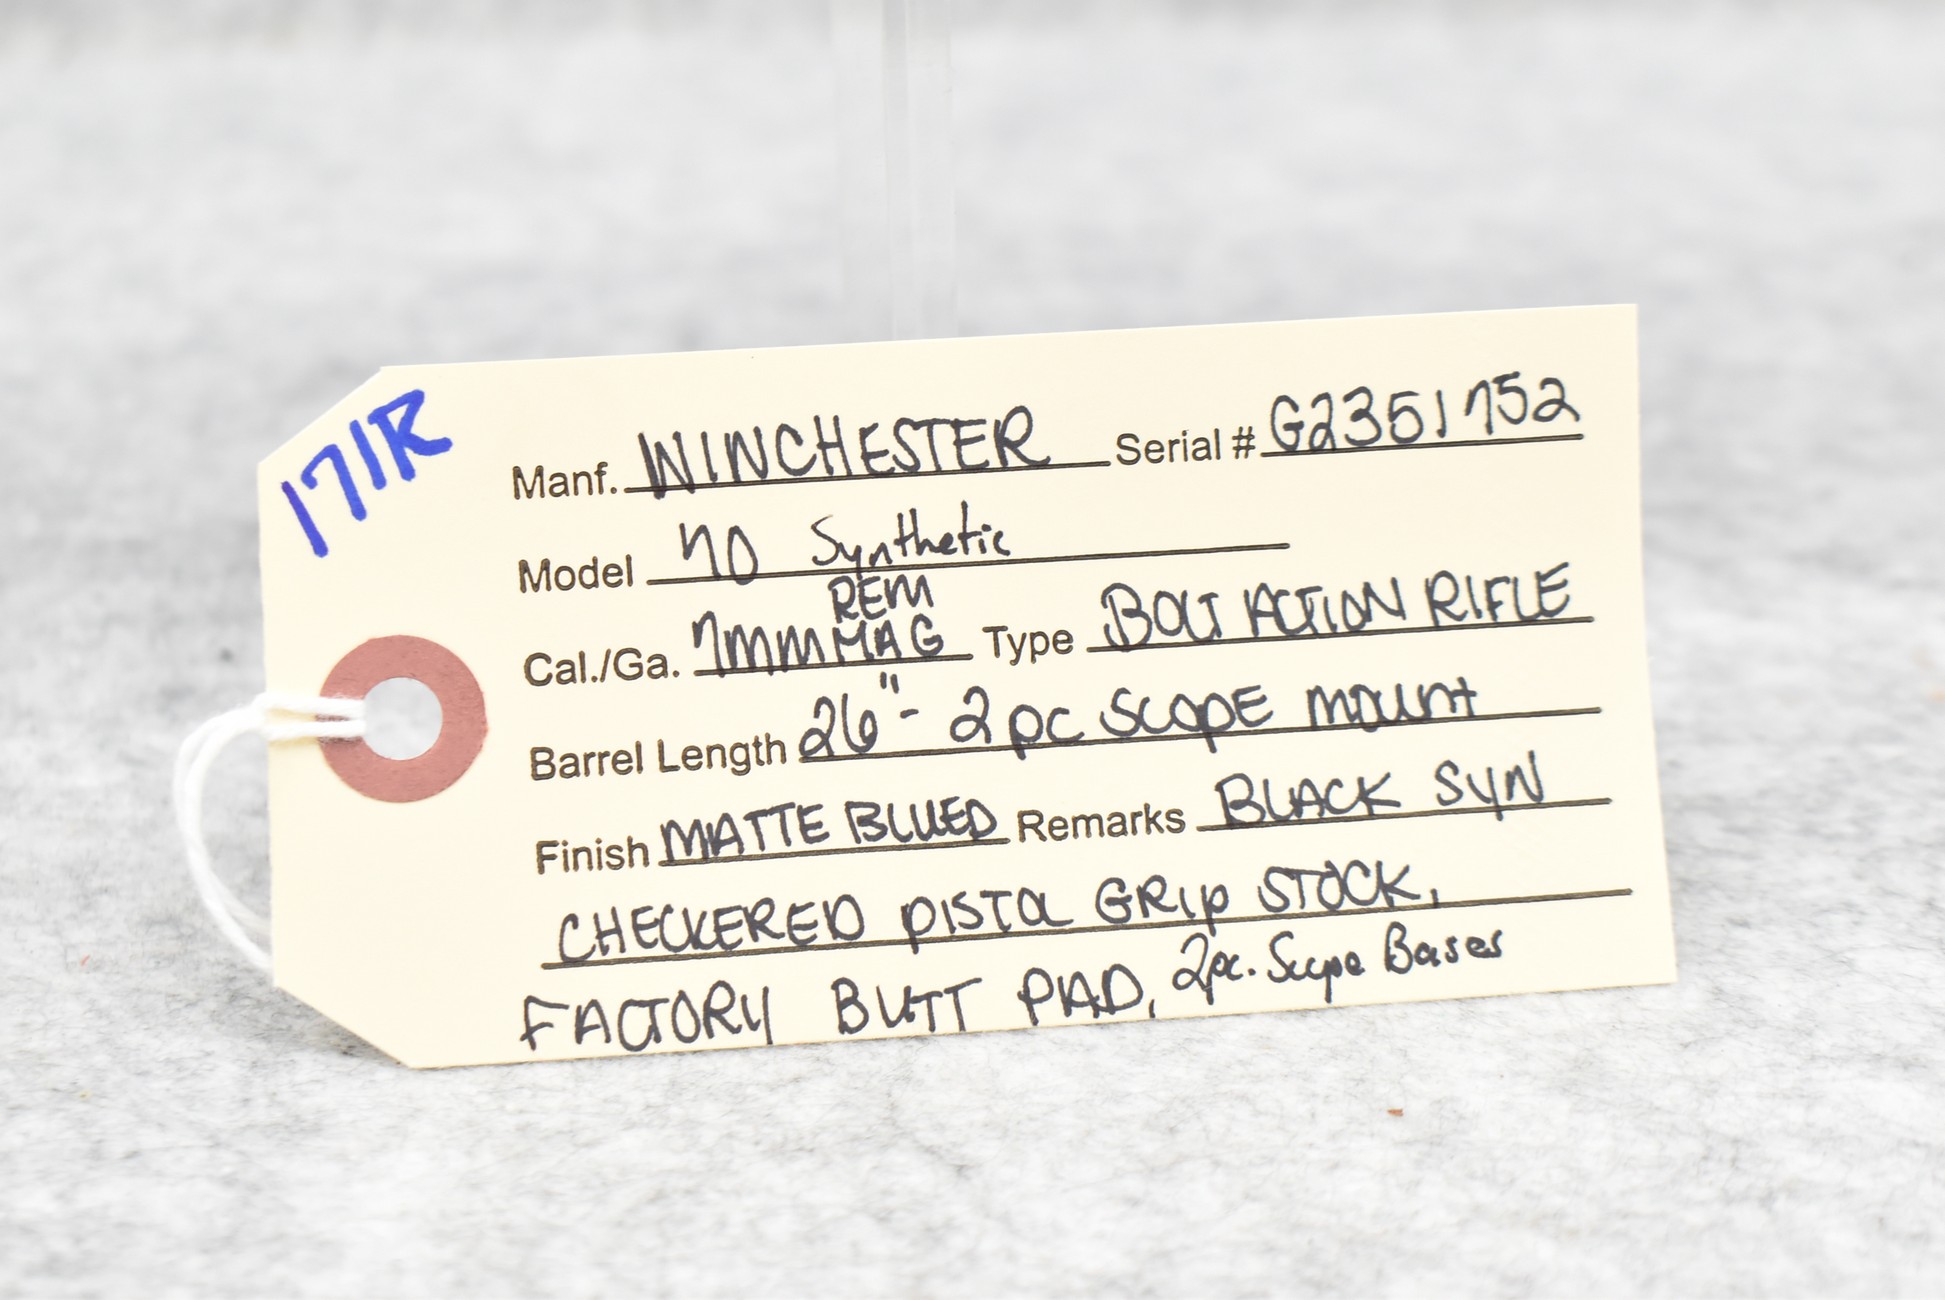 171R
Manf. WINCHESTER Serial # G2351752
Model 70 Synthetic
REM
Cal./Ga. 7mm MAG Type BOLT ACTION RIFLE
Barrel Length 26" - 2 pc SCOPE mount
Finish MATTE BLUED Remarks BLACK SYN
CHECKERED PISTOL GRIP STOCK,
FACTORY BUTT PAD, 2pc. Scope Bases